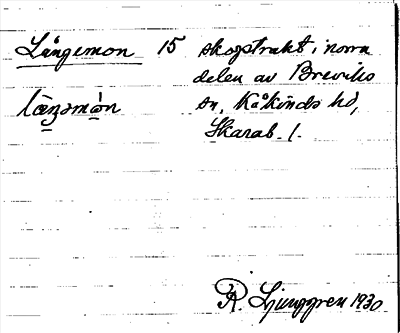 Långemon 15 skogstrakt i norra
delen av Breviks
länəmo̩n sn, Kåkinds hd,
Skarab. l.
R. Ljunggren 1930